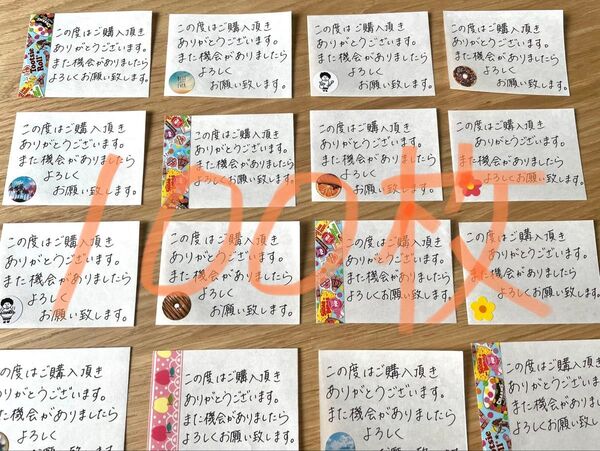 この度はご購入頂き
ありがとうございます。
また機会がありましたら
よろしくお願い致します。
この度はご購入頂き
ありがとうございます。
また機会がありましたら
よろしく
お願い致します。
この度はご購入頂き
ありがとうございます。
また機会がありましたら
よろしく
お願い致します。
この度はご購入頂き
ありがとうございます。
また機会がありましたら
よろしく
お願い致します。
この度はご購入頂き
ありがとうございます。
また機会がありましたら
よろしく
お願い致します。
この度はご購入頂き
ありがとうございます。
また機会がありましたら
よろしくお願い致します。
この度はご購入頂き
ありがとうございます。
また機会がありましたら
よろしく
お願い致します。
この度はご購入頂き
ありがとうございます。
また機会がありましたら
よろしくお願い致します。
100枚
この度はご購入頂き
ありがとうございます。
また機会がありましたら
よろしく
お願い致します。
この度はご購入頂き
ありがとうございます。
また機会がありましたら
よろしく
お願い致します。
この度はご購入頂き
ありがとうございます。
また機会がありましたら
よろしくお願い致します。
この度はご購入頂き
ありがとうございます。
また機会がありましたら
よろしく
お願い致します。
この度はご購入頂き
ありがとうございます。
また機会がありましたら
よろしく
お願い致します。
この度はご購入頂き
ありがとうございます。
また機会がありましたら
よろしくお願い致します。
この度はご購入頂き
ありがとうございます。
また機会がありましたら
よろしく
お願い致します。
この度はご購入頂き
ありがとうございます。
また機会がありま
よろしくお願い致し
Tootsie Roll